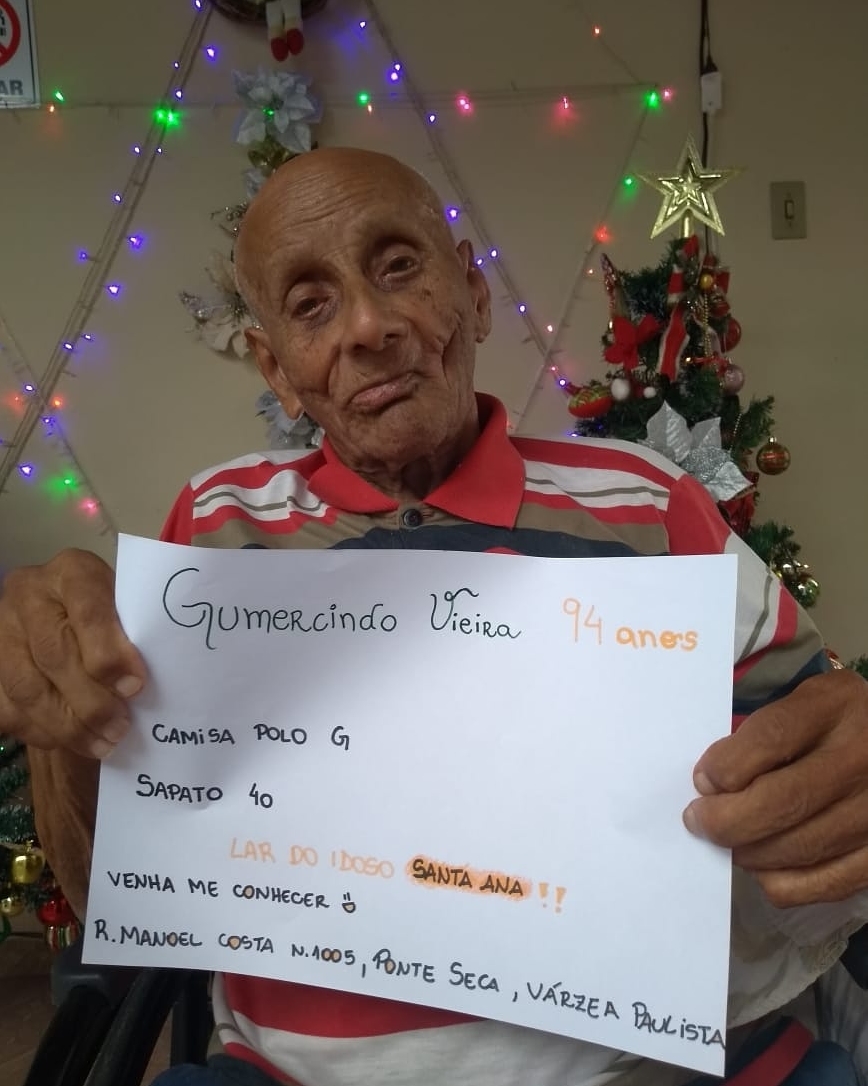 AR
Gumercindo Vieira 94 anos
CAMISA POLO G
SAPATO 40
LAR DO IDOSO SANTA ANA!!
VENHA ME CONHECER
R. MANOEL COSTA N.1005, PONTE SECA, VÁRZEA PAULISTA